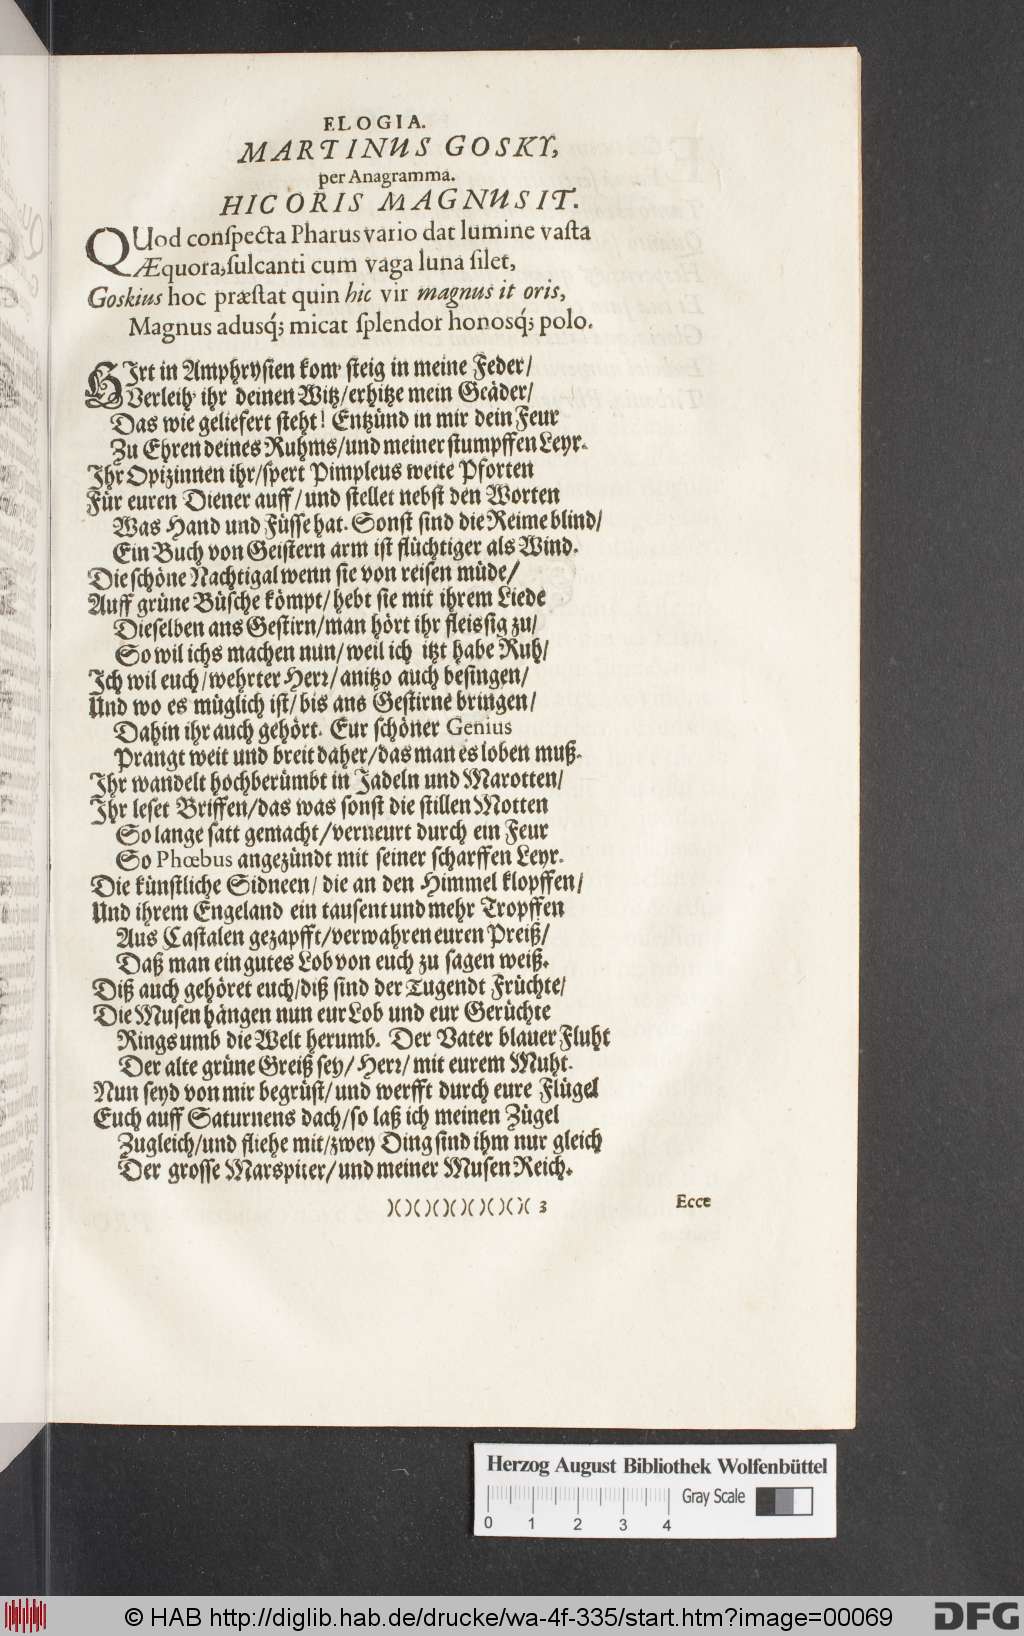 ELOGIA.
MARTINUS GOSKY,
per Anagramma.
HIC ORIS MAGNUS IT.
QUod conſpecta Pharus vario dat lumine vaſta
Æquora, ſulcanti cum vaga luna ſilet,
Goskius hoc præſtat quin hic vir magnus it oris,
Magnus adusq́; micat ſplendor honosq́; polo.
HIrt in Amphryſien kom̃ ſteig in meine Feder/
Verleih' ihr deinen Witz/erhitze mein Geäder/
Das wie geliefert ſteht! Entzünd in mir dein Feur
Zu Ehren deines Ruhms/und meiner ſtumpffen Leyr.
Ihr Opizinnen ihr/ſpert Pimpleus weite Pforten
Für euren Diener auff/und ſtellet nebſt den Worten
Was Hand und Füſſe hat. Sonſt ſind die Reime blind/
Ein Buch von Geiſtern arm iſt flüchtiger als Wind.
Die ſchöne Nachtigal wenn ſie von reiſen müde/
Auff grüne Büſche kömpt/hebt ſie mit ihrem Liede
Dieſelben ans Geſtirn/man hört ihr fleisſig zu/
So wil ichs machen nun/weil ich itzt habe Ruh/
Ich wil euch/wehrter Herr/anitzo auch beſingen/
Und wo es müglich iſt/bis ans Geſtirne bringen/
Dahin ihr auch gehört. Eur ſchöner Genius
Prangt weit und breit daher/das man es loben muß.
Ihr wandelt hochberümbt in Jadeln und Marotten/
Ihr leſet Briffen/das was ſonſt die ſtillen Motten
So lange ſatt gemacht/verneurt durch ein Feur
So Phœbus angezündt mit ſeiner ſcharffen Leyr.
Die künſtliche Sidneen/die an den Himmel klopffen/
Und ihrem Engeland ein tauſent und mehr Tropffen
Aus Caſtalen gezapfft/verwahren euren Preiß/
Daß man ein gutes Lob von euch zu ſagen weiß.
Diß auch gehöret euch/diß ſind der Tugendt Früchte/
Die Muſen hängen nun eur Lob und eur Gerüchte
Rings umb die Welt herumb. Der Vater blauer Fluht
Der alte grüne Greiß ſey/Herr/mit eurem Muht.
Nun ſeyd von mir begrüſt/und werfft durch eure Flügel
Euch auff Saturnens dach/ſo laß ich meinen Zügel
Zugleich/und fliehe mit/zwey Ding ſind ihm nur gleich
Der groſſe Marspiter/und meiner Muſen Reich.
)()()()()()()()()( 3
Ecce
Herzog August Bibliothek Wolfenbüttel
Gray Scale
0 1 2 3 4
© HAB http://diglib.hab.de/drucke/wa-4f-335/start.htm?image=00069
DFG